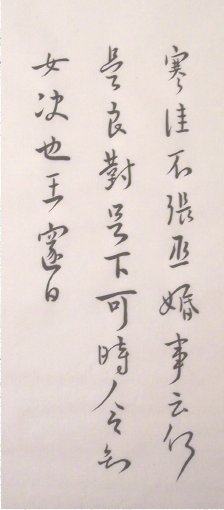 寒佳不張丞婚事云何
是良對足下可時令知
女決也王邃白